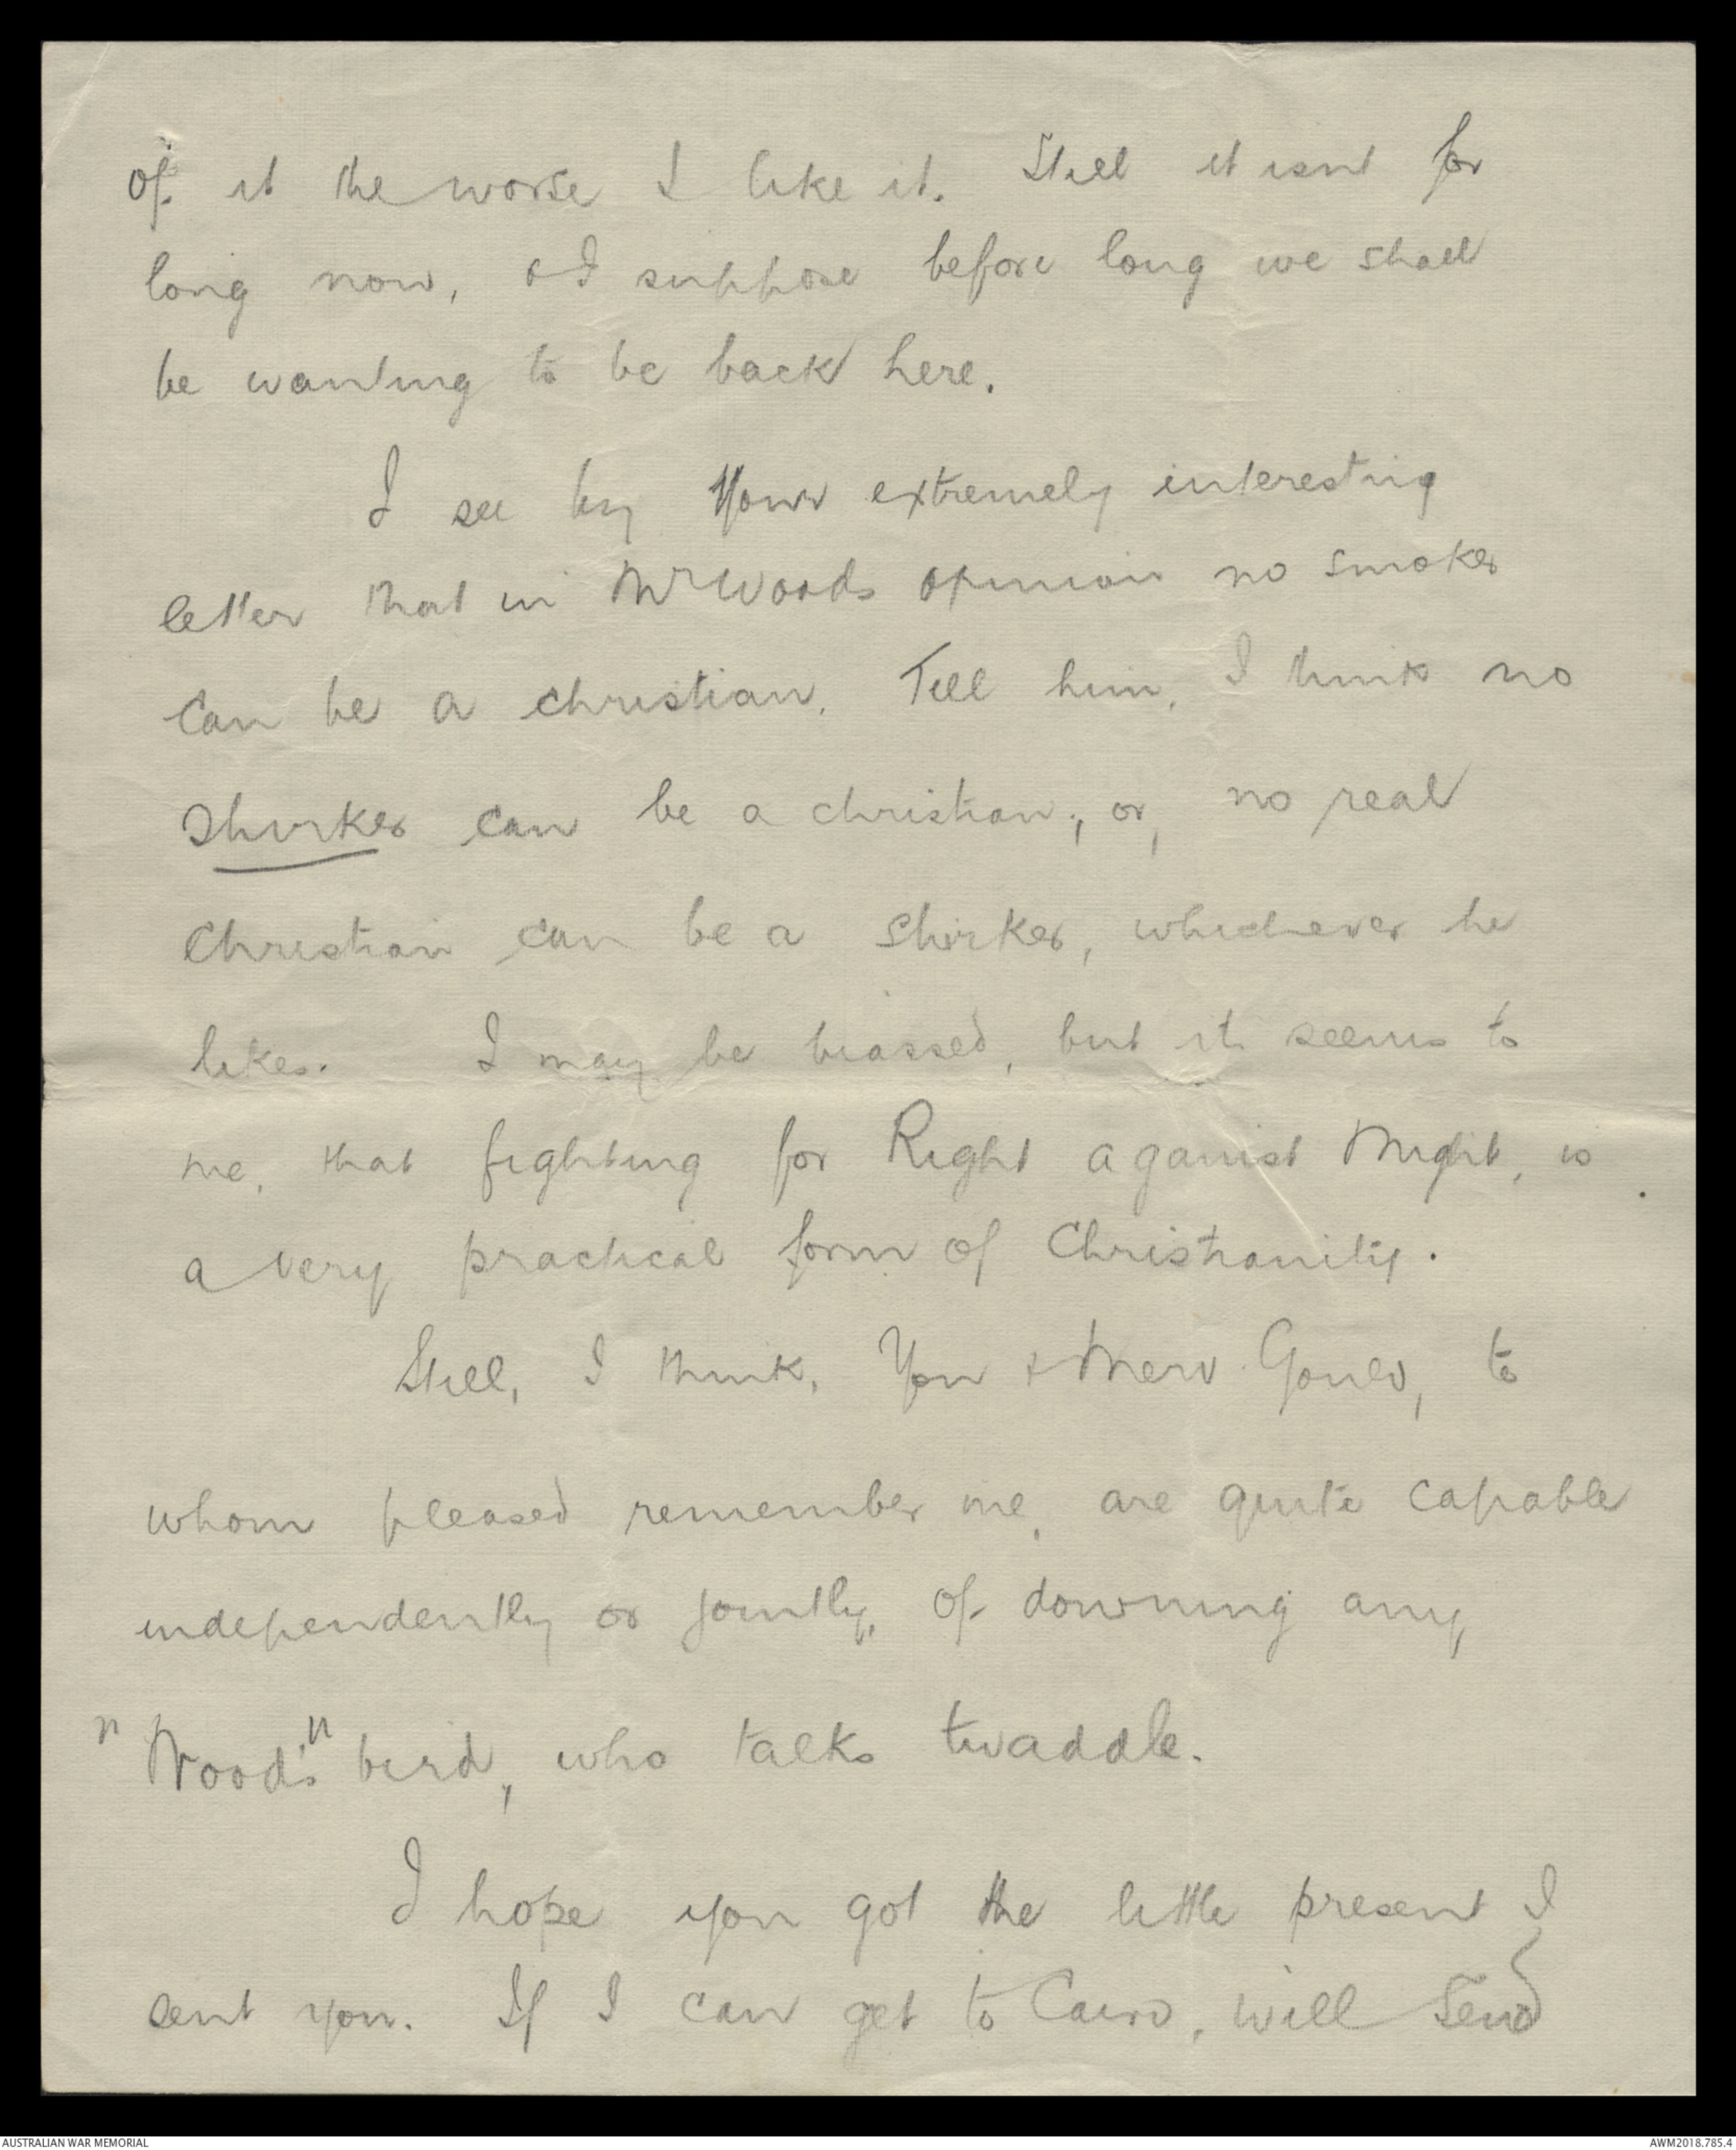 of it the worse I like it. Still it isnt for
long now, & I suppose before long we shall
be wanting to be back here.
I see by your extremely interesting
letter that in Mr Woods opinion no smoker
can be a christian. Tell him, I think no
shirker can be a christian, or, no real
Christian can be a shirker, whichever he
likes. I may be biassed, but it seems to
me, that fighting for Right against Might, is
a very practical form of Christianity.
Still, I think, You & Merv Gould, to
whom pleased remember me, are quite capable
independently or jointly, of downing any
"Wood's" bird, who talks twaddle.
I hope you got the little present I
sent you. If I can get to Cairo, will send
AUSTRALIAN WAR MEMORIAL
AWM2018.785.4